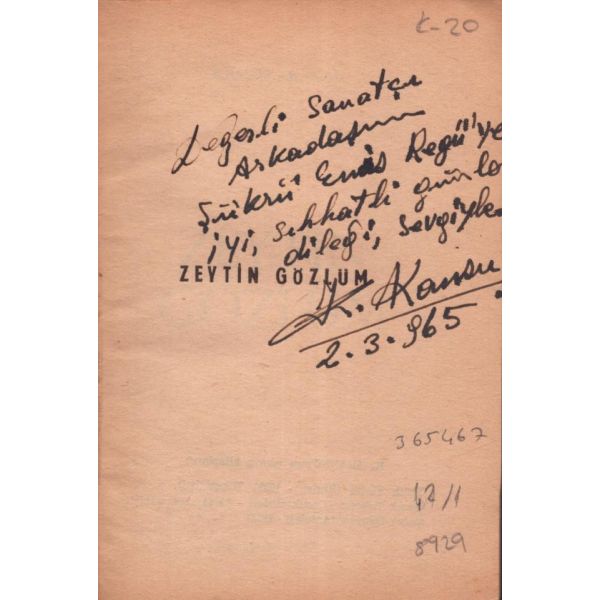 K-20
Değerli Sanatçı
Arkadaşım
Şükrü Enis Regü'ye
iyi, sıhhatli günler
dileği, sevgiyle
ZEYTİN GÖZLÜM
K. Kansu
2.3.965
365467
47/1
8929